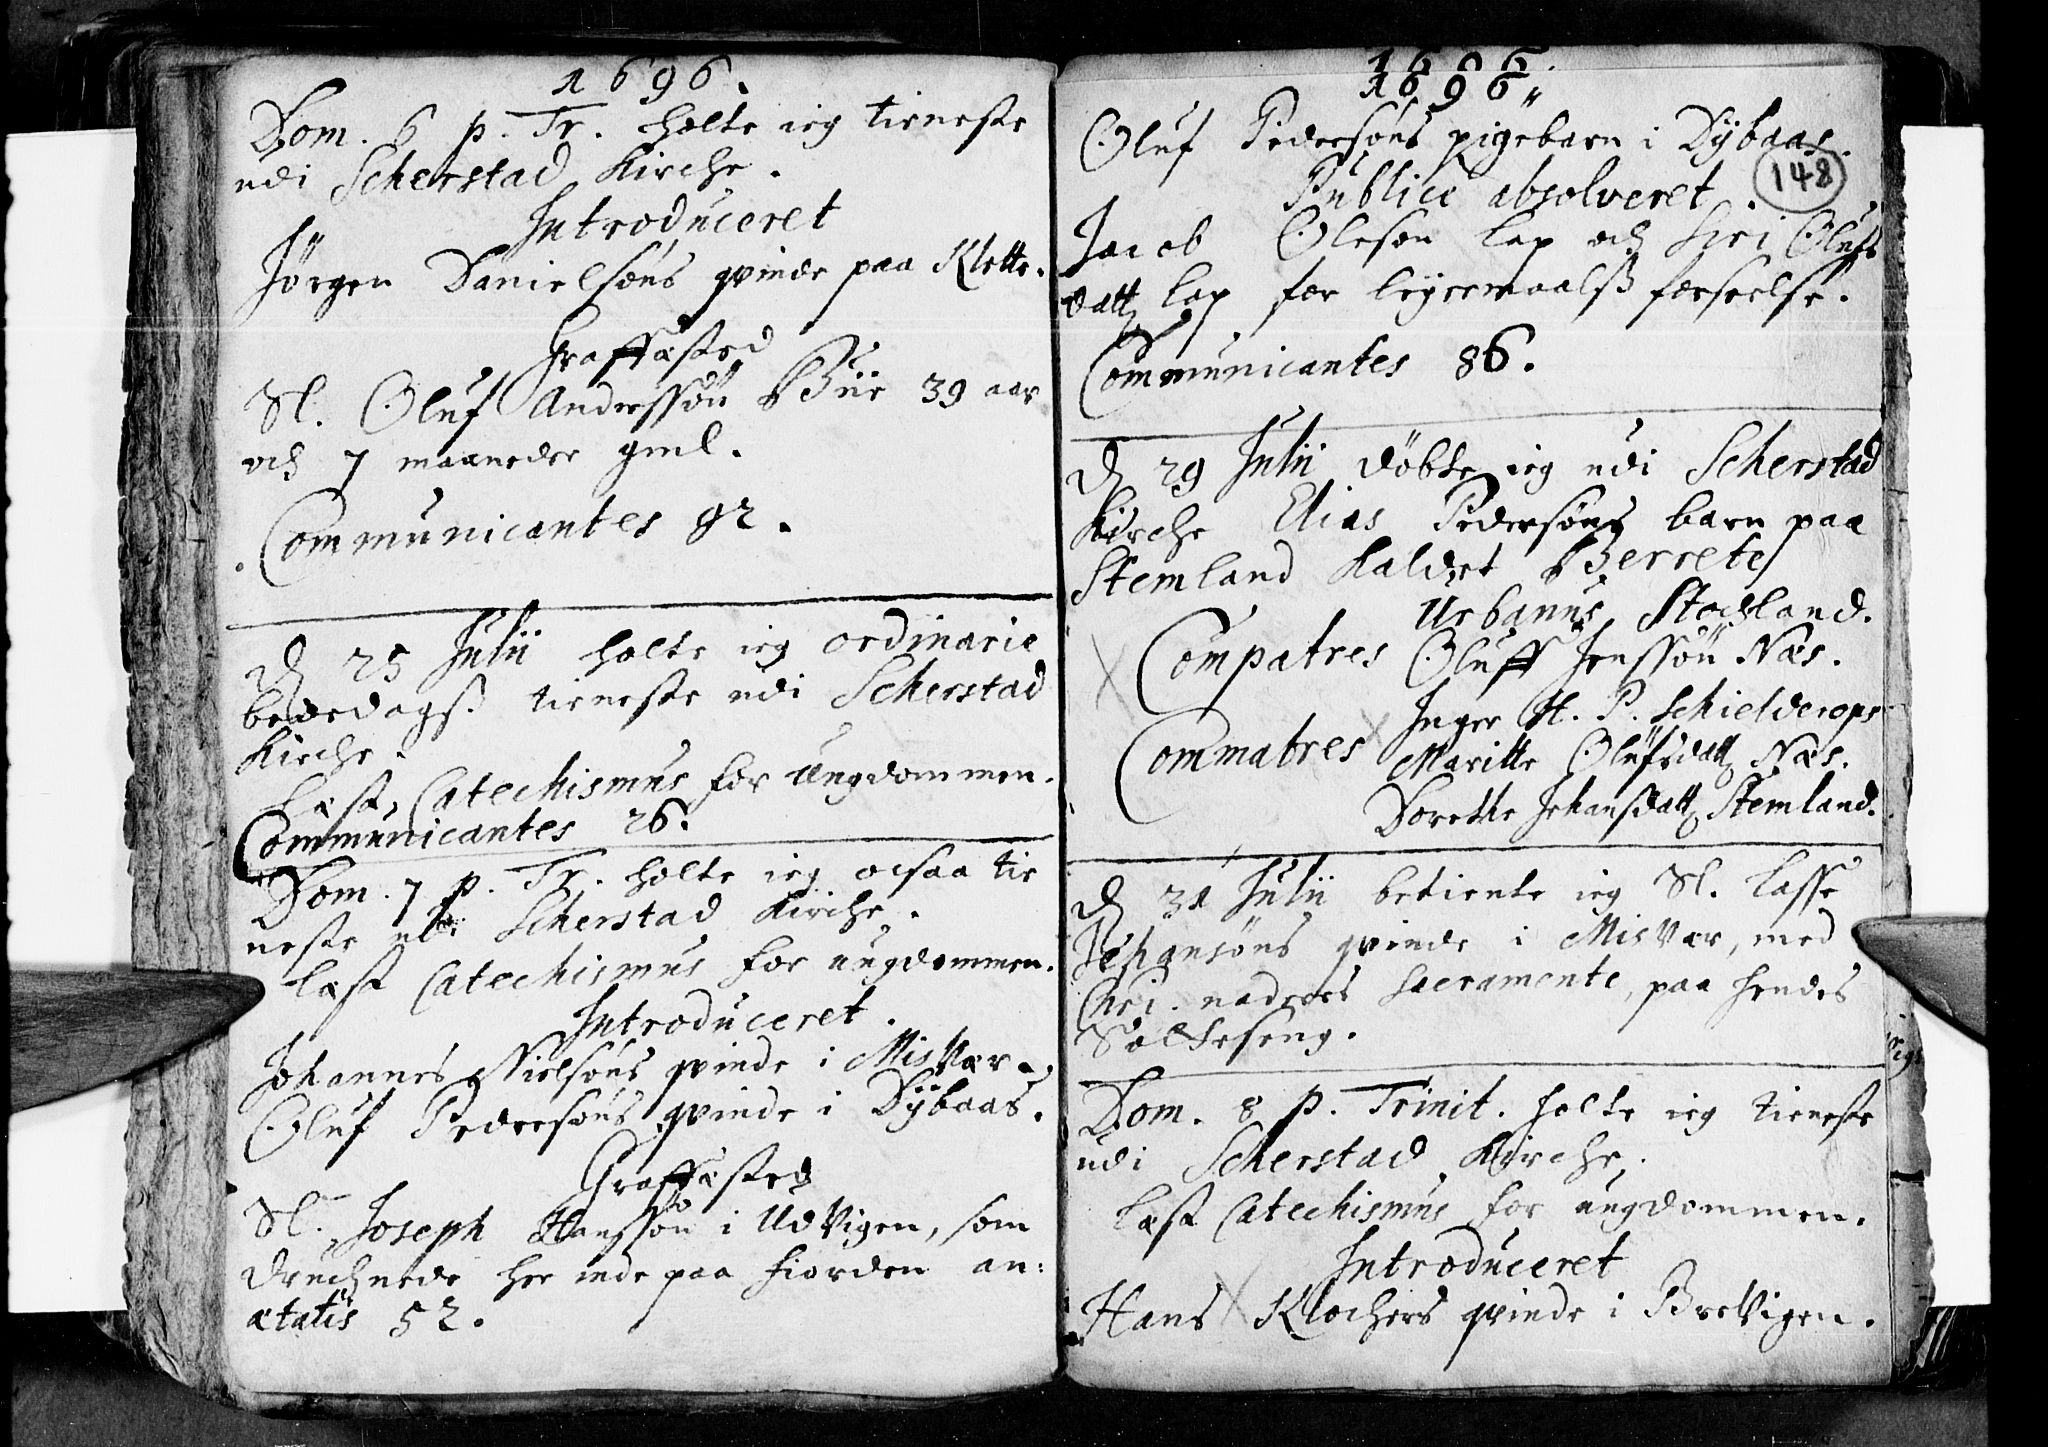 1696.
Dom. 6 p. Tr. holte ieg tieneste
udi Scherstad Kirche.
Introduceret
Jørgen Danielsøns qvinde paa Klette.
Graffæsted
Sl. Oluf Anderssøn Biie 39 aar
och 7 maaneder gml.
Communicantes 92.
D. 25 Julii holte ieg ordinarie
bededagss tieneste udi Scherstad
Kirche.
Læst, Catechismus for Ungdommen.
Communicantes 26.
Dom. 7 p. Tr. holte ieg ocsaa tie
neste udi Scherstad Kirche.
læst Catechismus for ungdommen.
Introduceret.
Johannes Nielsøns qvinde i MisVær.
Oluf Pedersøns qvinde i Dÿbaas.
Graffæsted
Sl. Joseph Hanssøn i UdVigen, som
druchnede her inde paa fiorden an:
ætatis 52.
1696
1696
Oluf Pedersøns pigebarn i Dÿbaas.
148
Publicè absolveret.
Jacob Olesøn lap och Siri Olufs
datt lap for leyermaalss forseelse.
Communicantes 86.
D. 29 Julii døbte ieg udi Scherstad
Kirche Elias Pedersøns barn paa
Stemland kaldet Berrete
Urbanus Stochland.
Compatres Oluff Jenssøn Næs.
Inger H. P. Schielderops
Commatres Maritte Olufsdatt Næs.
Dorethe Johansdatt Stemland.
D. 31 Julii betiente ieg Sl. Lasse
Johansøns qvinde i MisVær, med
Chri. nadereś Sacramente, paa hendes
Sotteseng.
Dom. 8 p. Trinit. holte ieg tieneste
udi Scherstad Kirche.
læst Catechismus for ungdommen.
Introduceret
Hans Klochers qvinde i BreVigen.